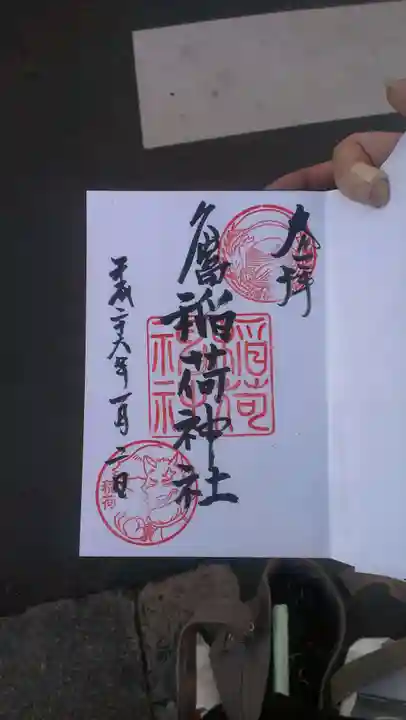 奉拝
久富稲荷神社
稲荷神社
平成二十六年一月二日
稲荷